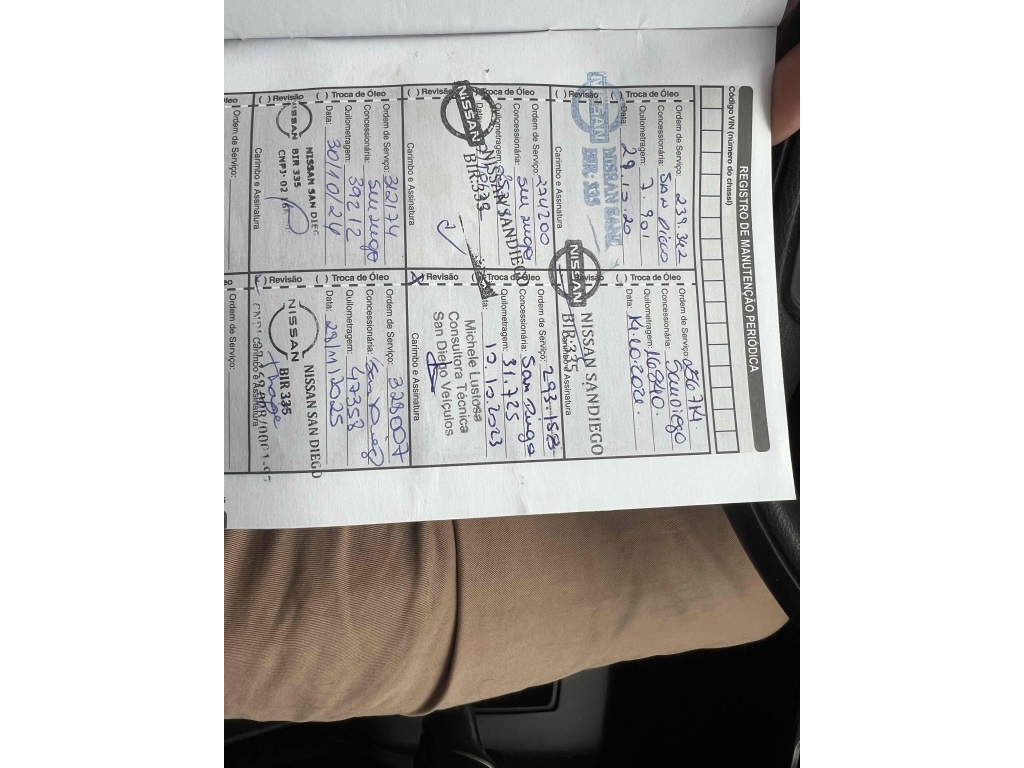 REGISTRO DE MANUTENÇÃO PERIÓDICA
Código VIN (número do chassi)
( ) Revisão ( ) Troca de Óleo
Ordem de Serviço: 239.342
Concessionária: San Diego
Quilometragem: 7.901
Data: 29.10.20
NISSAN SAN
BIR: 335
NISSAN
( ) Revisão ( ) Troca de Óleo
Ordem de Serviço:
Concessionária: San Diego
Quilometragem: 16840.
Data:
Carimbo e Assinatura
NISSAN
NISSAN SANDIEGO
BIR:335
( ) Revisão ( ) Troca de Óleo
Ordem de Serviço: 274200
Concessionária: San Diego
Quilometragem:
Data:
Carimbo e Assinatura
NISSAN
NISSAN SANDIEGO
BIR:335
( ) Revisão ( ) Troca de Óleo
Ordem de Serviço: 293.158
Concessionária: San Diego
Quilometragem: 31.725
Data: 10.10.2023
Michele Lustosa
Consultora Técnica
San Diego Veículos
( ) Revisão ( ) Troca de Óleo
Ordem de Serviço: 312174
Concessionária: San Diego
Quilometragem: 39212
Data: 30/10/24
Carimbo e Assinatura
NISSAN
NISSAN SAN DIEG
BIR 335
CNPJ: 02
( ) Revisão ( ) Troca de Óleo
Ordem de Serviço: 328007
Concessionária: San Diego
Quilometragem: 47358
Data: 28/11/2025
Carimbo e Assinatura
NISSAN
NISSAN SAN DIEGO
BIR 335
Ordem de Serviço:
Ordem de Serviço: